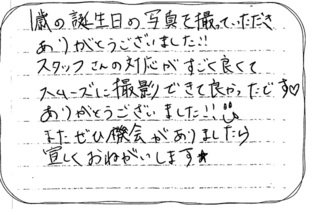 1歳の誕生日の写真を撮っていただき
ありがとうございました!!
スタッフさんの対応がすごく良くて
スムーズに撮影できて良かったです♡
ありがとうございました!!
またぜひ機会がありましたら
宜しくおねがいします★